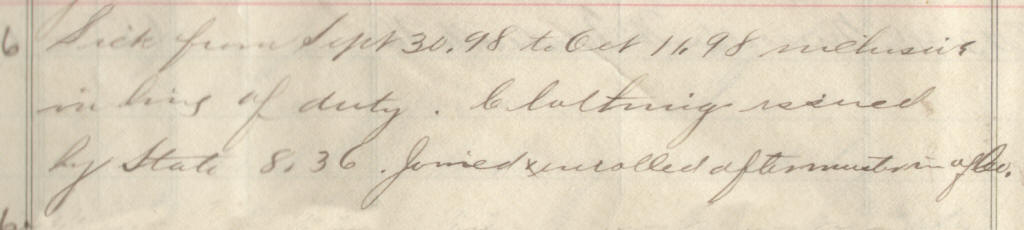 6 Sick from Sept 30.98 to Oct 11.98 inclusive
in line of duty. Clothing issued
by State 8.36. Joined & enrolled after muster in of Co.